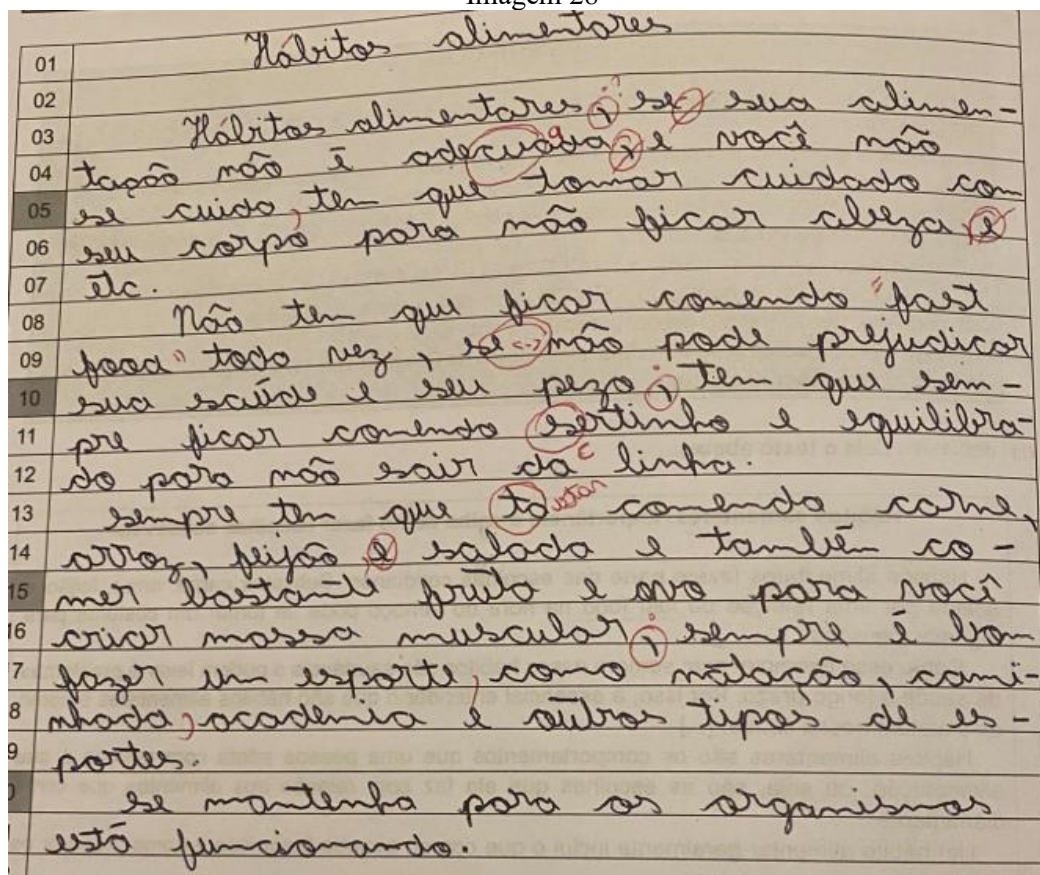 Imagem 28
01 Hábitos alimentares
02
03 Hábitos alimentares, se sua alimen-
04 tação não é adecuada, e você não
05 se cuida, tem que tomar cuidado com
06 seu corpo para não ficar obeza e
07 etc.
08 Não tem que ficar comendo "fast
09 food" toda vez, se não pode prejudicar
10 sua saúde e seu pezo, tem que sem-
11 pre ficar comendo sertinho e equilibra-
12 do para não sair da linha.
13 sempre tem que ta estar comendo carne,
14 arroz, feijão e salada e também co-
15 mer bastante fruta e ovo para você
16 criar massa muscular, sempre é bom
7 fazer um esporte, como natação, cami-
8 nhada, academia e outros tipos de es-
9 portes.
0 se mantenha para os organismos
está funcionando.